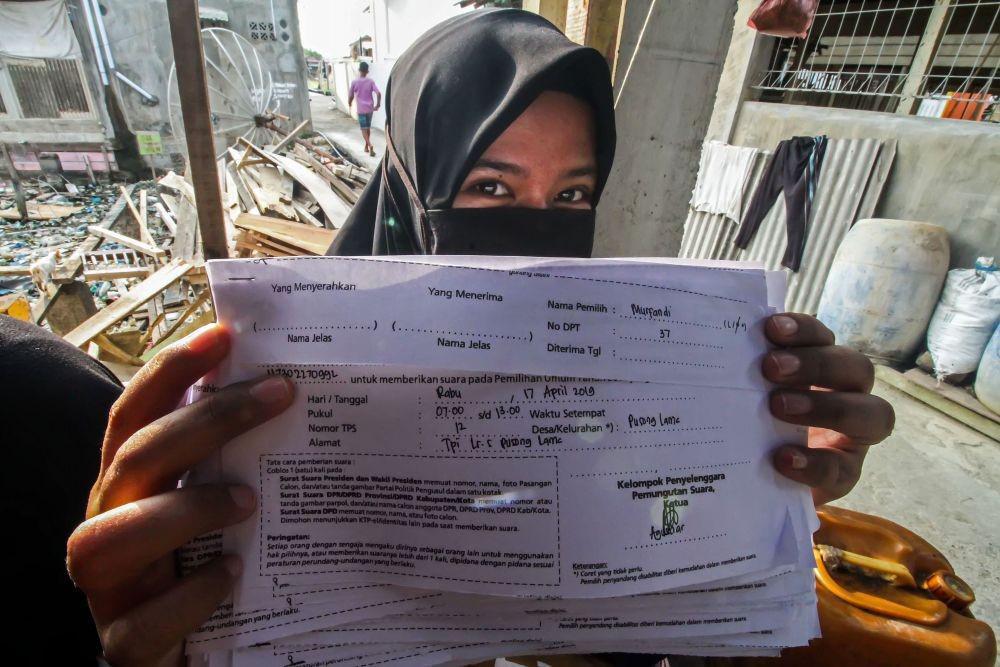 Yang Menyerahkan
Yang Menerima
Nama Pemilih : Murfandi (L/P)
No DPT : 37
Diterima Tgl :
(..............................) (..............................)
Nama Jelas
Nama Jelas
untuk memberikan suara pada Pemilihan Umum
Hari / Tanggal : Rabu , 17 April 2019
Pukul : 07.00 s/d 13.00 Waktu Setempat
Nomor TPS : 12 Desa/Kelurahan *) : Pusong Lama
Alamat : Tpi Lr. 5 pusong Lama
Tata cara pemberian suara :
Coblos 1 (satu) kali pada :
- Surat Suara Presiden dan Wakil Presiden memuat nomor, nama, foto Pasangan
Calon, dan/atau tanda gambar Partai Politik Pengusul dalam satu kotak.
- Surat Suara DPR/DPRD Provinsi/DPRD Kabupaten/Kota memuat nomor atau
tanda gambar parpol, dan/atau nama calon anggota DPR, DPRD Prov, DPRD Kab/Kota.
- Surat Suara DPD memuat nomor, nama, atau foto calon.
- Dimohon menunjukkan KTP-el/identitas lain pada saat memberikan suara.
Peringatan:
Setiap orang dengan sengaja mengaku dirinya sebagai orang lain untuk menggunakan
hak pilihnya, atau memberikan suaranya lebih dari 1 kali, dipidana dengan pidana sesuai
peraturan perundang-undangan yang berlaku.
Kelompok Penyelenggara
Pemungutan Suara,
Ketua
Keterangan:
*) Coret yang tidak perlu.
Pemilih penyandang disabilitas diberi kemudahan dalam memberikan
undangan yang berlaku.
Pemilih penyandang disabilitas diberi kemudahan dalam memberikan suara